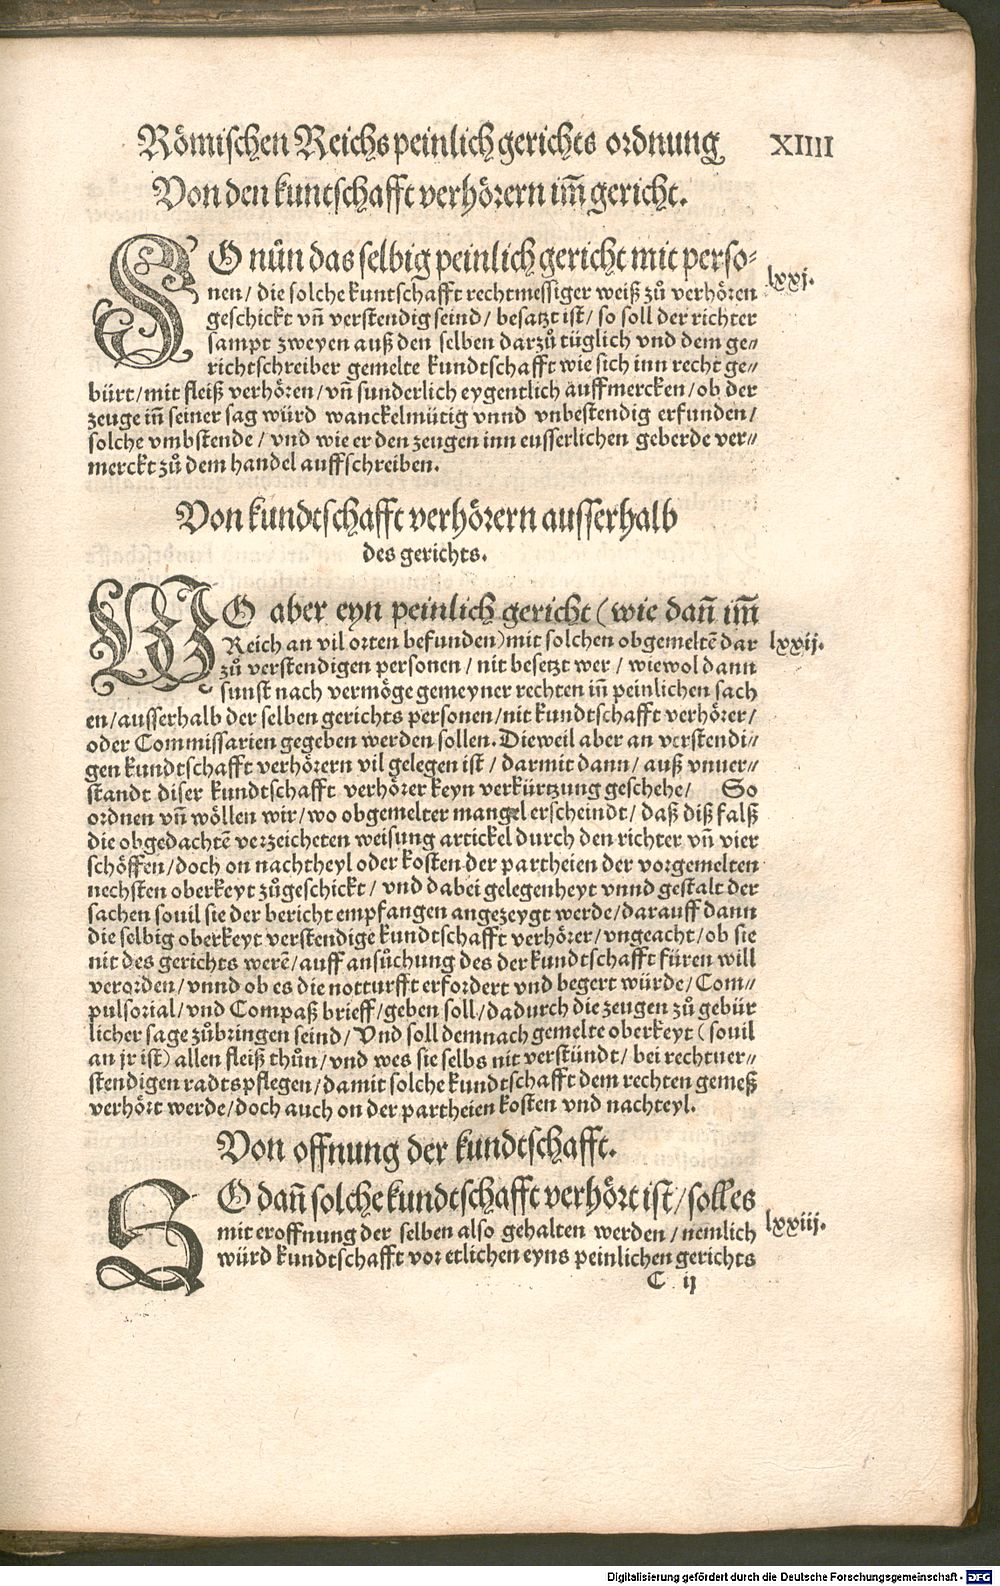 Römischen Reichs peinlich gerichts ordnung XIIII
Von den kuntschafft verhörern im̃ gericht.
SO nůn das selbig peinlich gericht mit perso⸗
nen/ die solche kuntschafft rechtmessiger weiß zů verhören
lxxj.
geschickt vñ verstendig seind/ besatzt ist/ so soll der richter
sampt zweyen auß den selben darzů tüglich vnd dem ge⸗
richtschreiber gemelte kundtschafft wie sich inn recht ge⸗
bürt/ mit fleiß verhören/ vñ sunderlich eygentlich auffmercken/ ob der
zeuge iñ seiner sag würd wanckelmütig vnnd vnbestendig erfunden/
solche vmbstende/ vnd wie er den zeugen inn eusserlichen geberde ver⸗
merckt zů dem handel auffschreiben.
Von kundtschafft verhörern ausserhalb
des gerichts.
WO aber eyn peinlich gericht (wie dañ im̃
Reich an vil orten befunden) mit solchen obgemeltẽ dar
lxxij.
zů verstendigen personen/ nit besetzt wer/ wiewol dann
sunst nach vermöge gemeyner rechten iñ peinlichen sach
en/ ausserhalb der selben gerichts personen/ nit kundtschafft verhörer/
oder Commissarien gegeben werden sollen. Dieweil aber an verstendi⸗
gen kundtschafft verhörern vil gelegen ist/ darmit dann/ auß vnuer⸗
standt diser kundtschafft verhörer keyn verkürtzung geschehe/ So
ordnen vñ wöllen wir/ wo obgemelter mangel erscheindt/ daß diß falß
die obgedachtẽ verzeicheten weisung artickel durch den richter vñ vier
schöffen/ doch on nachtheyl oder kosten der partheien der vorgemelten
nechsten oberkeyt zůgeschickt/ vnd dabei gelegenheyt vnnd gestalt der
sachen souil sie der bericht empfangen angezeygt werde/ darauff dann
die selbig oberkeyt verstendige kundtschafft verhörer/ vngeacht/ ob sie
nit des gerichts werẽ/ auff ansůchung des der kundtschafft füren will
verorden/ vnnd ob es die notturfft erfordert vnd begert würde/ Com⸗
pulsorial/ vnd Compaß brieff/ geben soll/ dadurch die zeugen zů gebür
licher sage zůbringen seind/ Vnd soll demnach gemelte oberkeyt (souil
an jr ist) allen fleiß thůn/ vnd wes sie selbs nit verstündt/ bei rechtuer⸗
stendigen radts pflegen/ damit solche kundtschafft dem rechten gemeß
verhört werde/ doch auch on der partheien kosten vnd nachteyl.
Von offnung der kundtschafft.
SO dañ solche kundtschafft verhört ist/ soll es
mit eroffnung der selben also gehalten werden/ nemlich
lxxiij.
würd kundtschafft vor etlichen eyns peinlichen gerichts
C ij
Digitalisierung gefördert durch die Deutsche Forschungsgemeinschaft - DFG